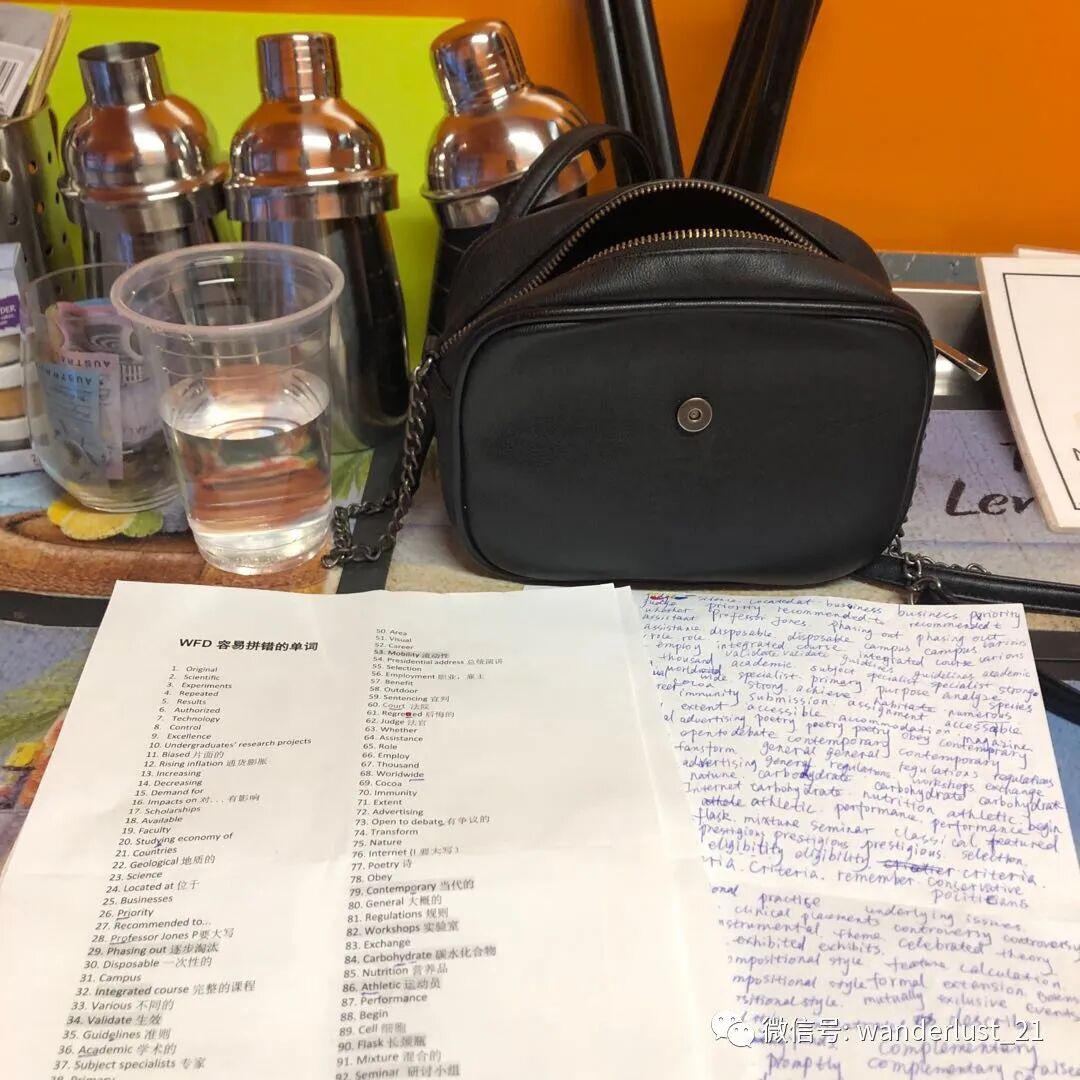 WFD 容易拼错的单词
1. Original
2. Scientific
3. Experiments
4. Repeated
5. Results
6. Authorized
7. Technology
8. Control
9. Excellence
10. Undergraduates' research projects
11. Biased 片面的
12. Rising inflation 通货膨胀
13. Increasing
14. Decreasing
15. Demand for
16. Impacts on 对...有影响
17. Scholarships
18. Available
19. Faculty
20. Studying economy of
21. Countries
22. Geological 地质的
23. Science
24. Located at 位于
25. Businesses
26. Priority
27. Recommended to...
28. Professor Jones P要大写
29. Phasing out 逐步淘汰
30. Disposable 一次性的
31. Campus
32. Integrated course 完整的课程
33. Various 不同的
34. Validate 生效
35. Guidelines 准则
36. Academic 学术的
37. Subject specialists 专家
38. Primary
50. Area
51. Visual
52. Career
53. Mobility 流动性
54. Presidential address 总统演讲
55. Selection
56. Employment 职业，雇主
57. Benefit
58. Outdoor
59. Sentencing 宣判
60. Court 法院
61. Regretted 后悔的
62. Judge 法官
63. Whether
64. Assistance
65. Role
66. Employ
67. Thousand
68. Worldwide
69. Cocoa
70. Immunity
71. Extent
72. Advertising
73. Open to debate 有争议的
74. Transform
75. Nature
76. Internet (I 要大写)
77. Poetry 诗
78. Obey
79. Contemporary 当代的
80. General 大概的
81. Regulations 规则
82. Workshops 实验室
83. Exchange
84. Carbohydrate 碳水化合物
85. Nutrition 营养品
86. Athletic 运动员
87. Performance
88. Begin
89. Cell 细胞
90. Flask 长颈瓶
91. Mixture 混合的
92. Seminar 研讨小组
judge science. Located at business business priority
whether priority recommended to recommended t
assistant Professor Jones. phasing out phasing out
assistance
role role disposable disposable campus campus various
employ integrated course integrated course various
validate validate guidelines guidelines academic
thousand academic. subject specialist specialist strong
world wide specialist. primary purpose analyze species
cocoa strong. achieve habitats numerous
immunity submission. assignment
extent accessible accessible
al advertising poetry poetry poetry accommodation magazine
open to debate contemporary obey contemporary
transform general general contemporary
advertising general regulations regulations regulations
nature. carbohydrate workshops exchange
Internet carbohydrate. nutrition carbohydrate carbohydrate
athletic. performance. athletic. begin
performance
flask. mixture seminar classical featured
prestigious prestigious prestigious. selection.
eligibility eligibility criteria.
ria. criteria. remember. conservative
politicians
onal practise underlying issues.
clinical placements controversy controversy
instrumental theme
exhibited exhibits. celebrated theory
mpositional style. feature calculation.
mpositional style formal extension.
sitional style. mutually exclusive events
describe
complementary
promptly complementary false
AUSTRALIA
Ler
微信号: wanderlust_21